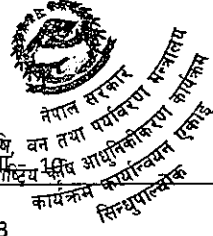 नेपाल सरकार
कृषि, वन तथा पर्यावरण मन्त्रालय
राष्ट्रिय कृषि आधुनिकीकरण कार्यक्रम
कार्यक्रम कार्यान्वयन एकाई
सिन्धुपाल्चोक
10
3